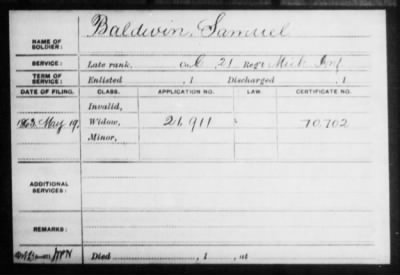 Baldwin, Samuel
NAME OF SOLDIER:
SERVICE: Late rank, Co C, 21 Regt Mich Inf
TERM OF SERVICE: Enlisted , 1 Discharged , 1
DATE OF FILING. CLASS. APPLICATION NO. LAW. CERTIFICATE NO.
Invalid,
1863 May 19, Widow, 21.911 70.702
Minor,
ADDITIONAL SERVICES:
REMARKS:
Died , 1 , at